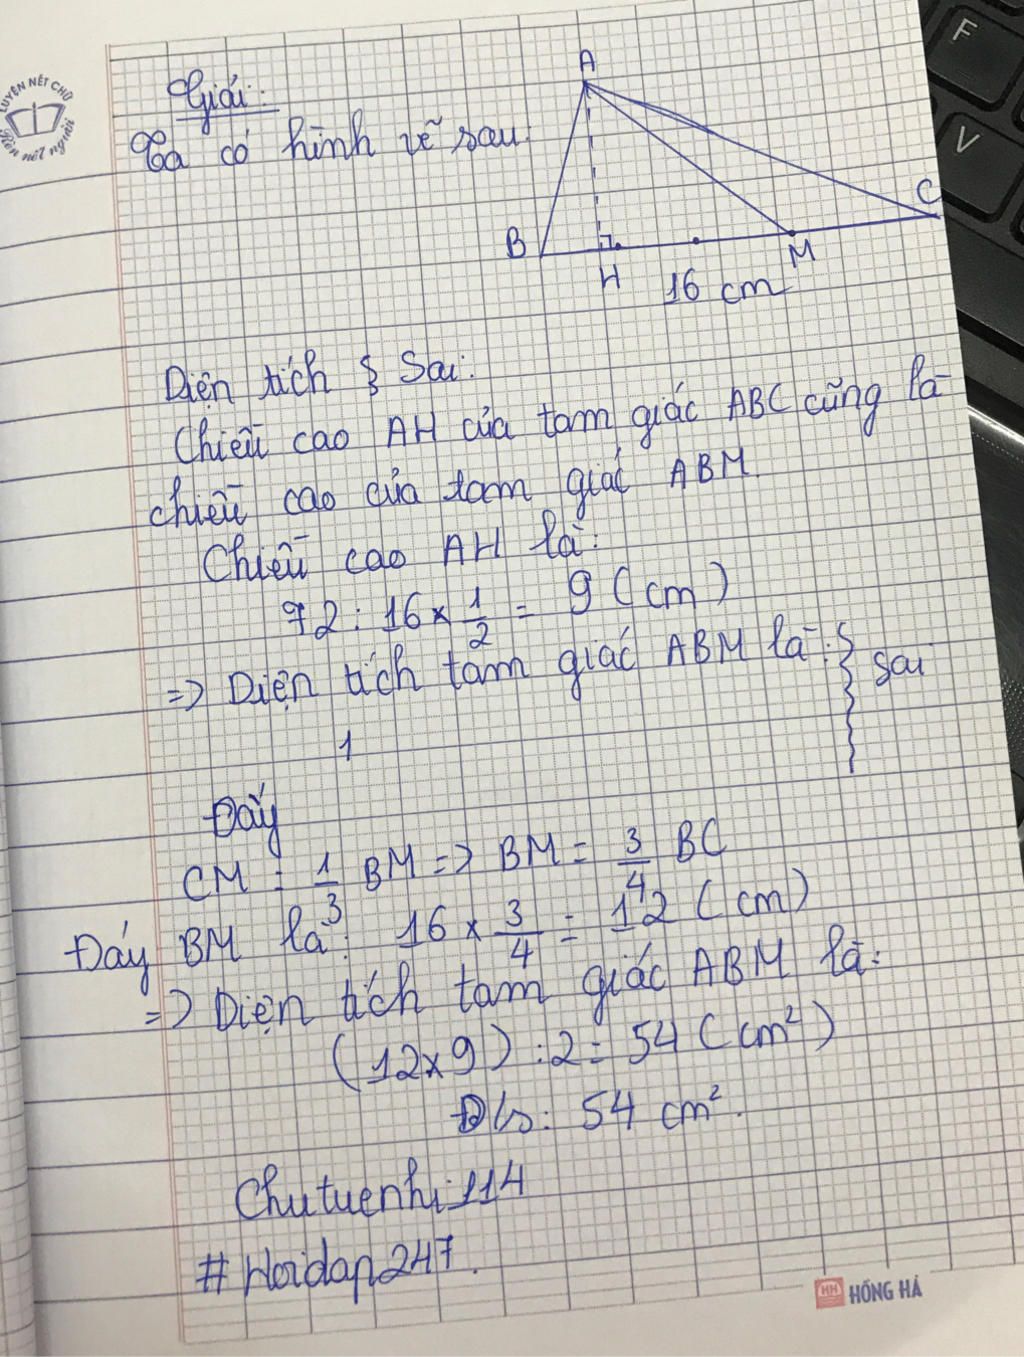 LUYỆN NÉT CHỮ
Rèn nết người
Giải:
Ta có hình vẽ sau:
A
B
H
M
C
16 cm
F
V
Diện tích Sai:
Chiều cao AH của tam giác ABC cũng là
chiều cao của tam giác ABM.
Chiều cao AH là:
72 : 16 × 1/2 = 9 (cm)
=> Diện tích tam giác ABM là:
sai
1
Đáy
CM = 1/3 BM => BM = 3/4 BC
Đáy BM là: 16 × 3/4 = 12 (cm)
=> Diện tích tam giác ABM là:
(12×9) : 2 = 54 (cm²)
Đ/s: 54 cm².
Chutuenhi114
#Hoidap247.
HH HỒNG HÀ